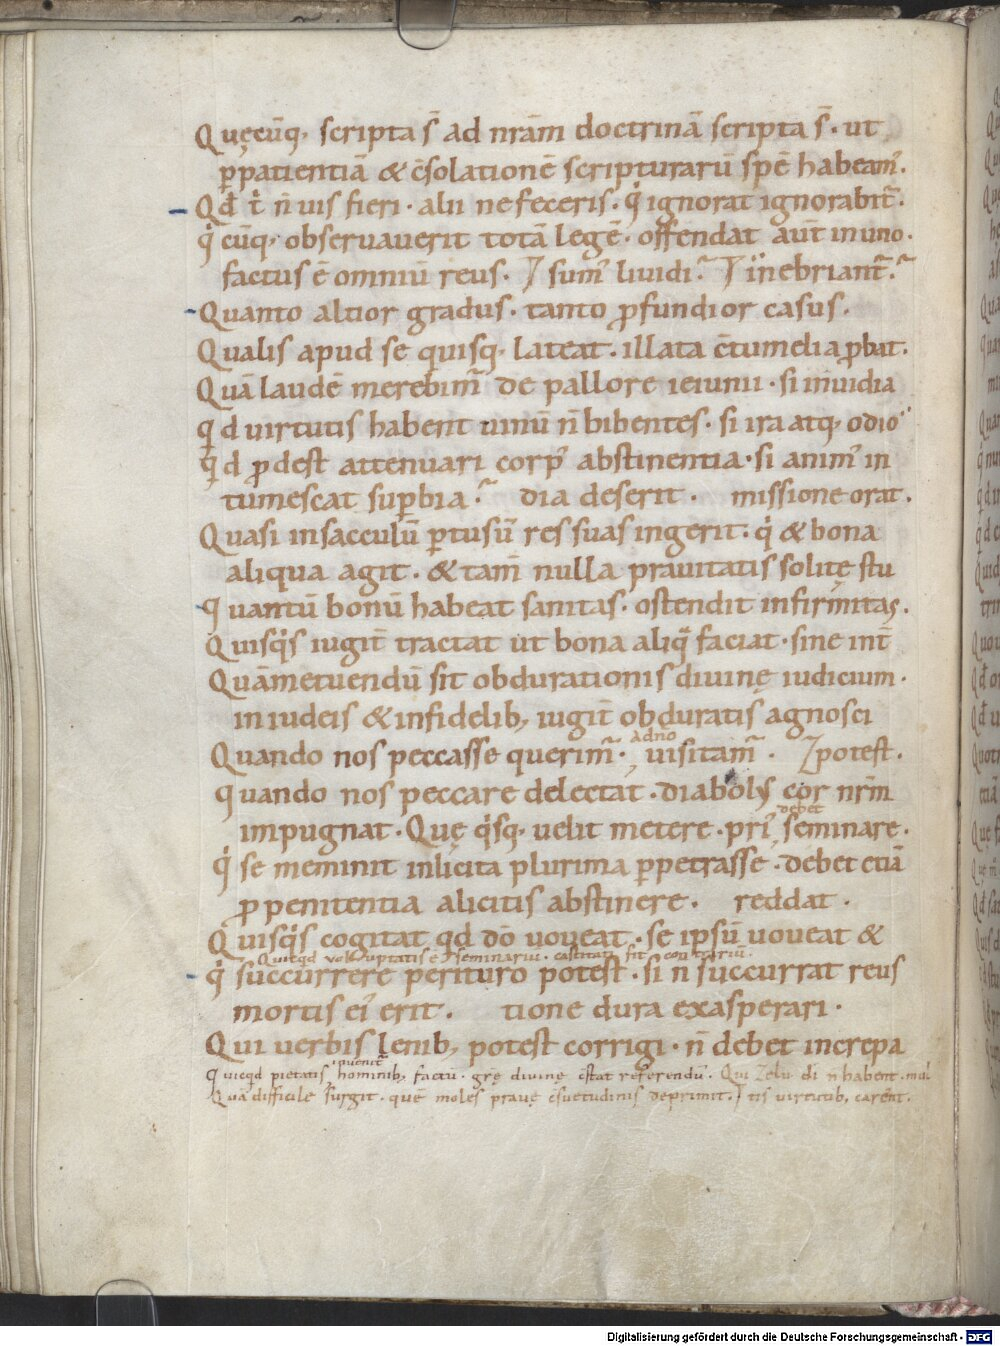 Quęcūq; scripta s̄ ad nrām doctrinā scripta s̄. ut
ꝑpatientiā & c̄solationē scripturarū spē habeam᷒.
Qđ t̄ n̄ uis fieri. alii ne feceris. q̇ ignorat ignorabit̄.
q̇cūq; obseruauerit totā legē. offendat aūt in uno.
factus ē omniū reus. sum᷒ liuidi. inebriant̄.
Quanto altior gradus. tanto ꝓfundior casus.
Qualis apud se quisq; lateat. illata c̄tumelia ꝓbat.
Quā laudē merebim᷒ de pallore ieiunii. si inuidia
qd uirtutis habent uinū n̄ bibentes. si ira atq; odio
qd ꝓdest attenuari corp᷒ abstinentia. si anim᷒ in
tumescat suꝑbia. dia deserit. missione orat.
Quasi in sacculū ꝑtusū res suas ingerit. q̇ & bona
aliqua agit. & tam̄ nulla prauitatis solitę stu
quantū bonū habeat sanitas. ostendit infirmitas.
Quisq̇s iugit̄ tractat ut bona aliq̄ faciat. sine int̄
Quā metuendū sit obdurationis diuinę iudicium.
in iudeis & infidelib; iugit̄ obduratis agnosci
Quando nos peccasse querim᷒. adno uisitam᷒. potest.
quando nos peccare delectat. diabolus cor nrm̄
impugnat. Quę q̇sq; uelit metere. pri᷒ debet seminare.
q̇ se meminit inlicita plurima ꝑpetrasse. debet etiā
ꝓ penitentia alicitis abstinere. reddat.
Quisq̇s cogitat qd dō uoueat. se ipsū uoueat &
Quicqd uoluptatis ē seminariū. castitati fit contrariū.
q̇ succurrere perituro potest. si n̄ succurrat reus
mortis ei᷒ erit. tione dura exasperari.
Qui uerbis lenib; potest corrigi. n̄ debet increpa
quicqd pietatis hominib; factū. grę diuinę c̄stat referendū. Qui zelū di n̄ habent. mul
Quā difficile surgit. quē moles prauę c̄suetudinis deprimit. tis uirtutib; carent.
Digitalisierung gefördert durch die Deutsche Forschungsgemeinschaft - DFG